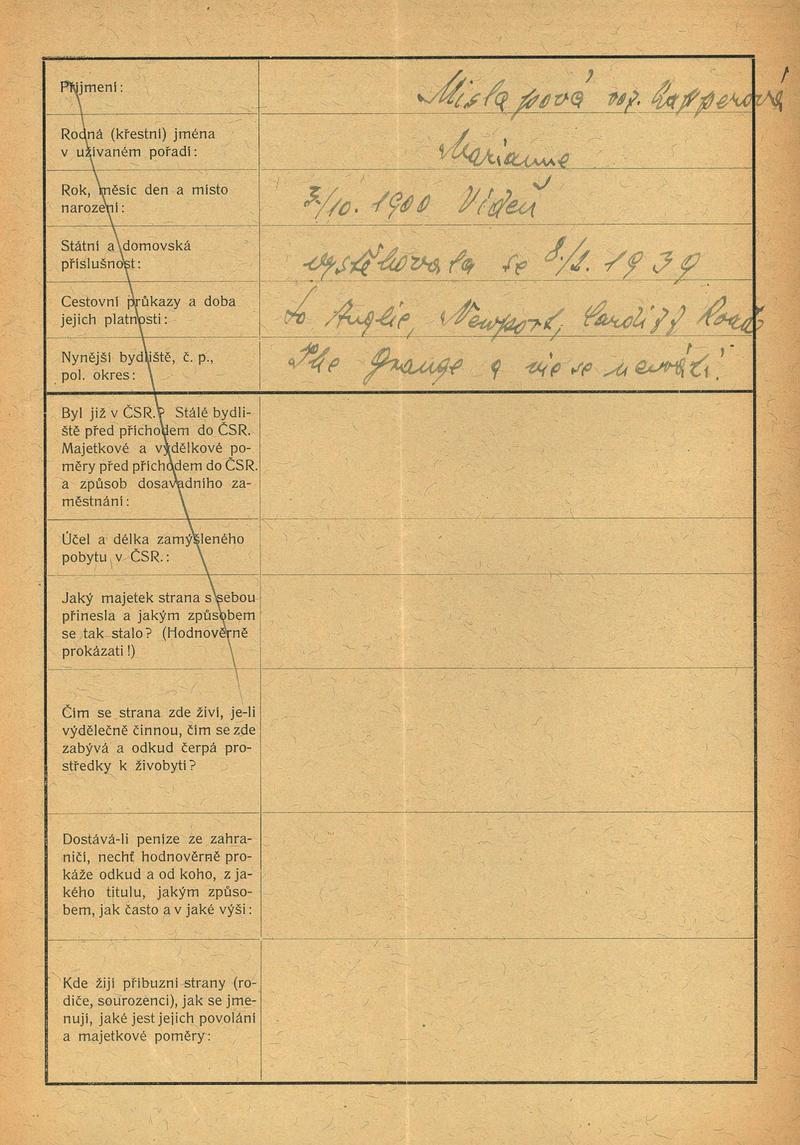 Příjmení: Mislapová roz. Kapperová
Rodná (křestní) jména
v užívaném pořadí: Marianne
Rok, měsíc den a místo
narození: 3/10. 1900 Vídeň
Státní a domovská
příslušnost: vystěhovala se 1939
Cestovní průkazy a doba
jejich platnosti: do Anglie, Newport, Cardiff Road
Nynější bydliště, č. p.,
pol. okres: The Grange a více se nevrátí.
Byl již v ČSR.? Stálé bydli-
ště před příchodem do ČSR.
Majetkové a výdělkové po-
měry před příchodem do ČSR.
a způsob dosavadního za-
městnání:
Účel a délka zamýšleného
pobytu v ČSR.:
Jaký majetek strana s sebou
přinesla a jakým způsobem
se tak stalo? (Hodnověrně
prokázati!)
Čím se strana zde živí, je-li
výdělečně činnou, čím se zde
zabývá a odkud čerpá pro-
středky k živobytí?
Dostává-li peníze ze zahra-
ničí, nechť hodnověrně pro-
káže odkud a od koho, z ja-
kého titulu, jakým způso-
bem, jak často a v jaké výši:
Kde žijí příbuzní strany (ro-
diče, sourozenci), jak se jme-
nují, jaké jest jejich povolání
a majetkové poměry: